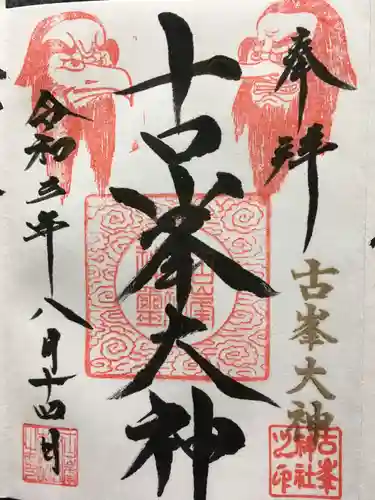 奉拝
古峯大神
古峯大神
令和三年八月十四日
古峯神社之印